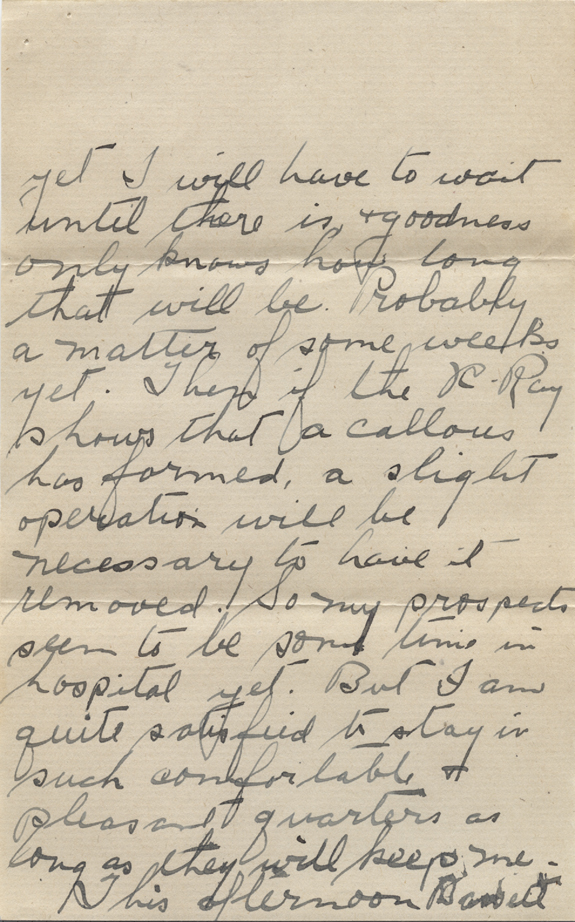 yet I will have to wait
until there is, + goodness
only knows how long
that will be. Probably
a matter of some weeks
yet. Then if the X-Ray
shows that a callous
has formed, a slight
operation will be
necessary to have it
removed. So my prospects
seem to be some time in
hospital yet. But I am
quite satisfied to stay in
such comfortable +
pleasant quarters as
long as they will keep me.
This afternoon